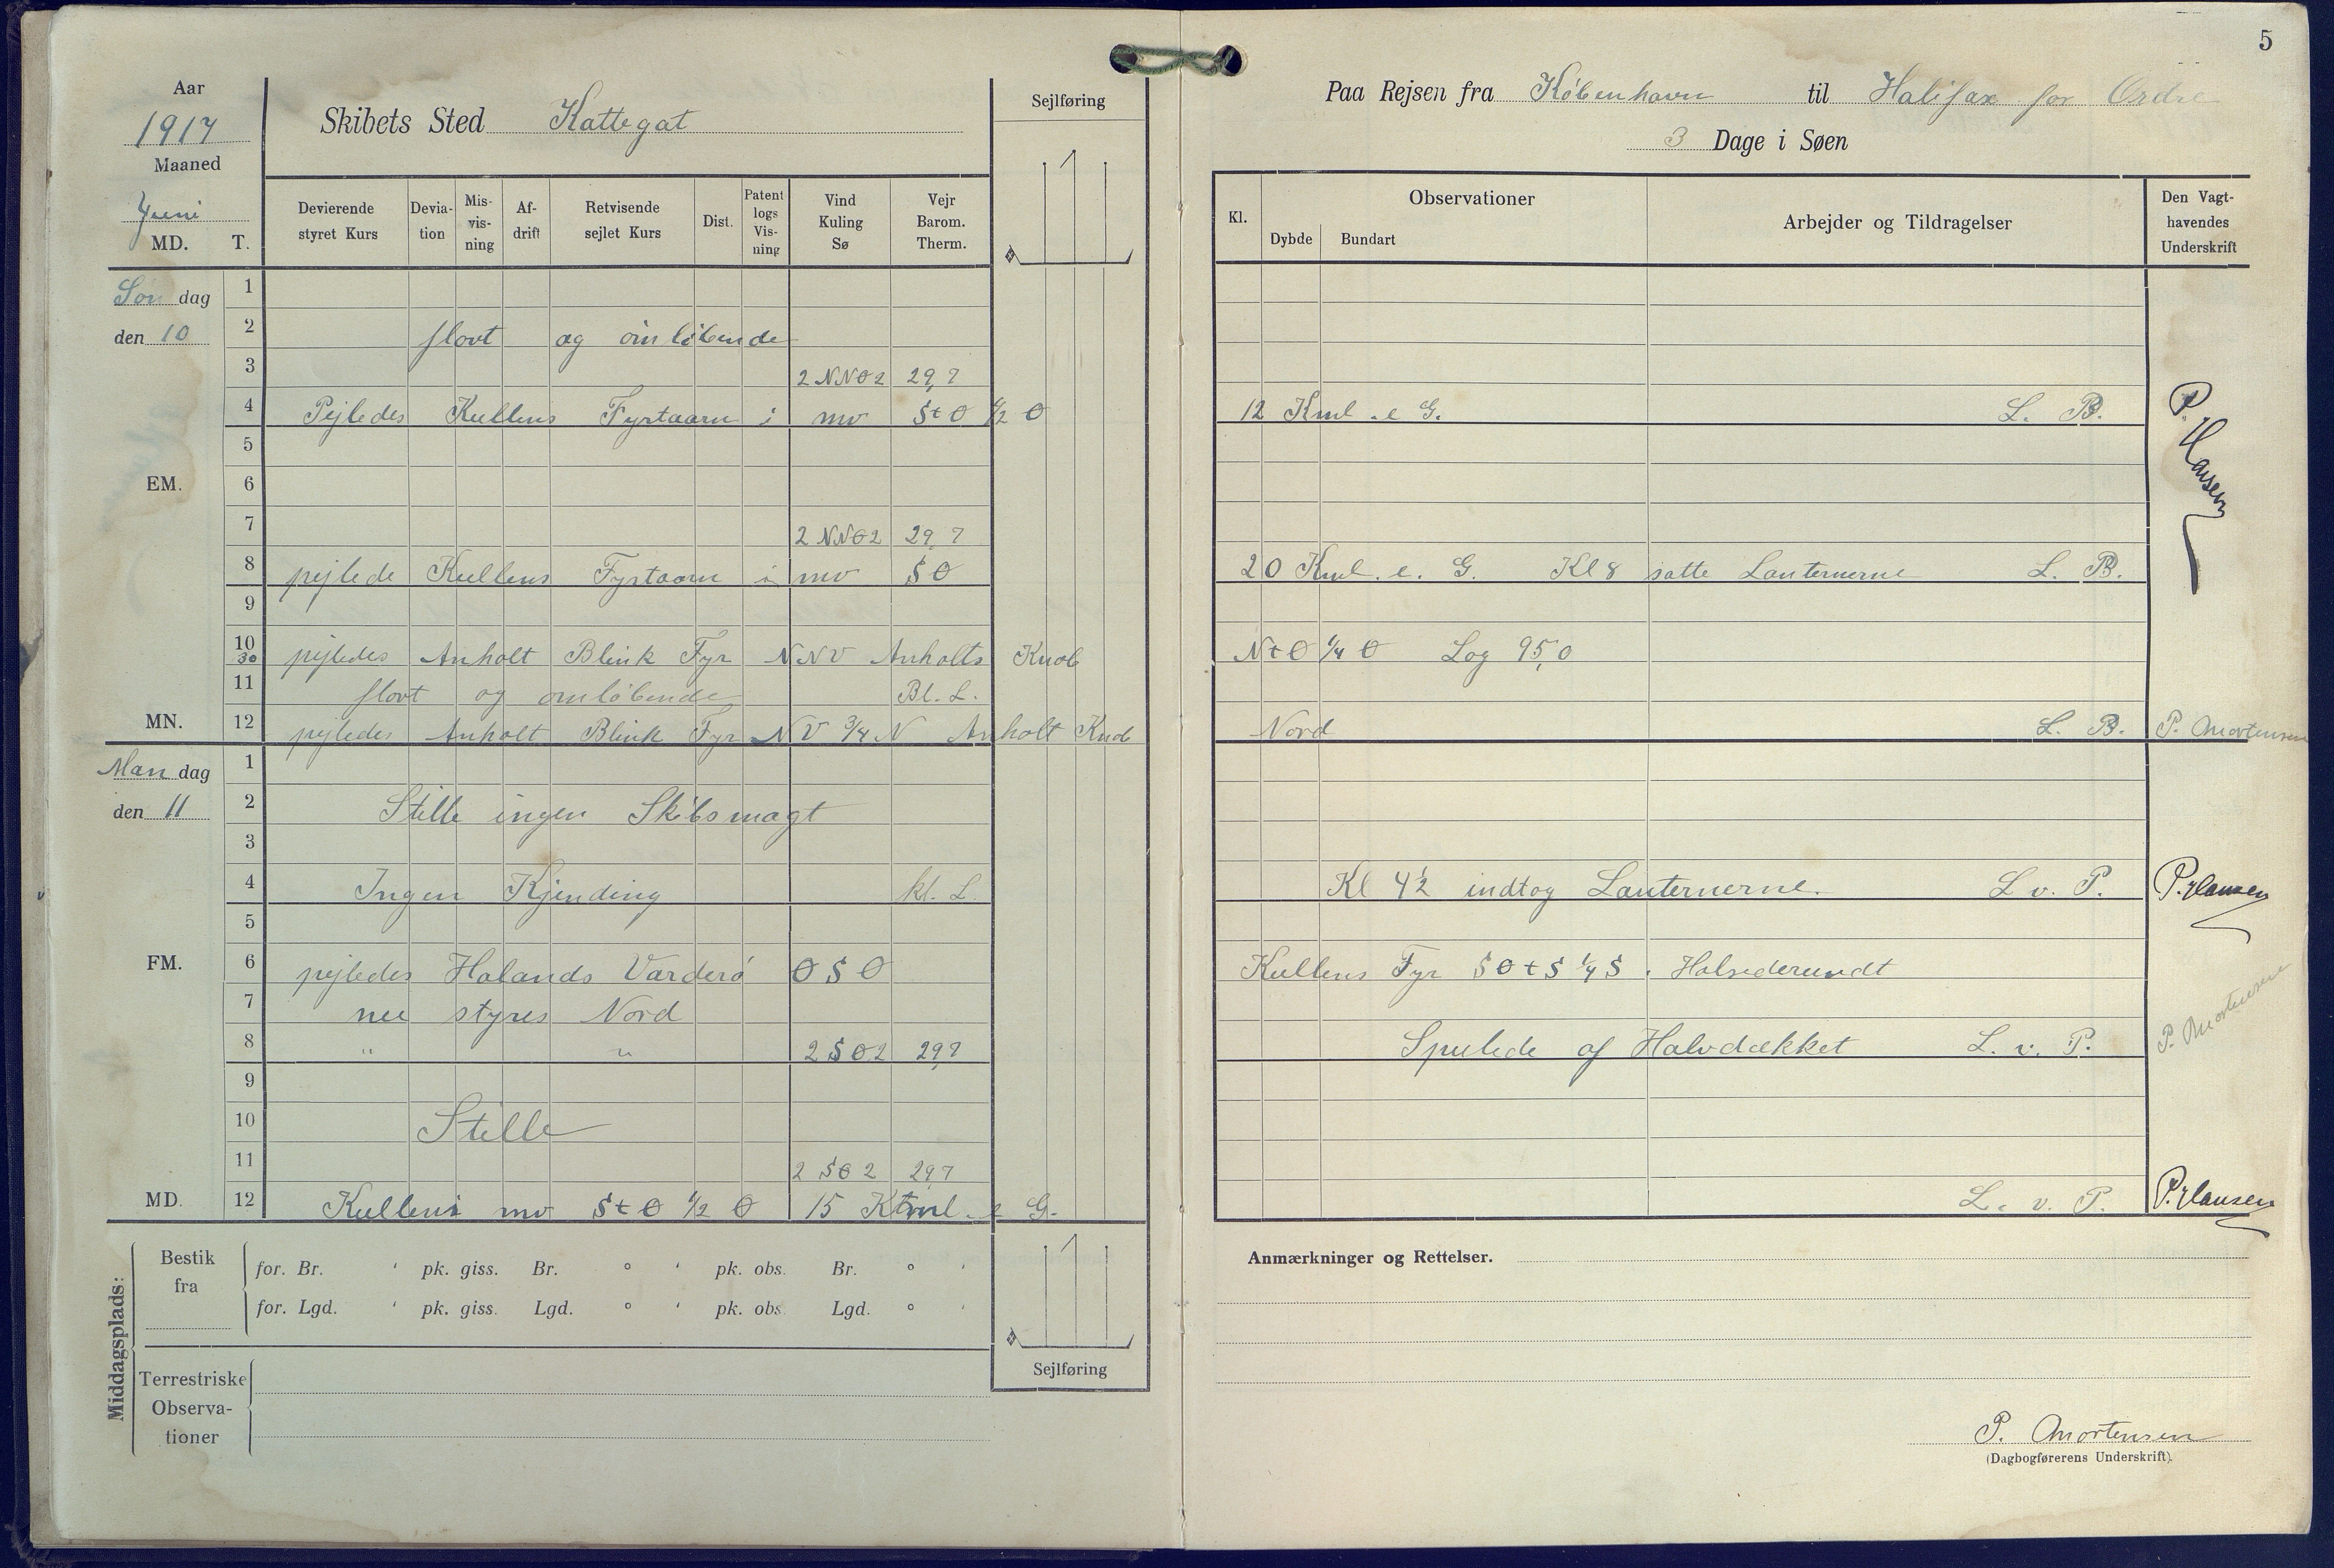 5
Aar
1917
Maaned
Juni
MD. T.
Skibets Sted Kattegat
Sejlføring
Paa Rejsen fra København til Halifax for Ordre
3 Dage i Søen
Devierende styret Kurs
Devia-tion
Mis-vis-ning
Af-drift
Retvisende sejlet Kurs
Dist.
Patent logs Vis-ning
Vind Kuling Sø
Vejr Barom. Therm.
Kl.
Observationer
Dybde Bundart
Arbejder og Tildragelser
Den Vagt-havendes Underskrift
Søn dag 1
den 10 2 flovt og omløbende
3 2 NNO 2 29,7
4 Pejledes Kullens Fyrtaarn i mv StO 1/2 O 12 Kml. e G. L. B. P. Hansen
5
EM. 6
7 2 NNO 2 29,7
8 pejlede Kullens Fyrtaarn i mv SO 20 Kml. e. G. Kl 8 satte Lanternerne L. B.
9
10 30 pejledes Anholt Blink Fyr NNV Anholts Knob NtO 1/4 O Log 95,0
11 flovt og omløbende Bl. L.
MN. 12 pejledes Anholt Blink Fyr NV 3/4 N Anholt Knob Nord L. B. P. Mortensen
Man dag 1
den 11 2 Stille ingen Skibsmagt
3
4 Ingen Kjending kl. L. Kl 4 1/2 indtog Lanternerne. L v. P. P. Hansen
5
FM. 6 pejledes Halands Varderø OSO Kullens Fyr SOtS 1/4 S. Halsederundt
7 nu styres Nord
8 " " 2 SO 2 29,7 Spulede af Halvdækket L. v. P. P. Mortensen
9
10 Stille
11 2 SO 2 29,7
MD. 12 Kullen i mv StO 1/2 O 15 Kvml. e G. L. v. P. P. Hansen
Middagsplads:
Bestik fra
for. Br. ' pk. giss. Br. ° ' pk. obs. Br. ° '
for. Lgd. ' pk. giss. Lgd. ° ' pk. obs. Lgd. ° '
Terrestriske Observa-tioner
Sejlføring
Anmærkninger og Rettelser.
P. Mortensen
(Dagbogførerens Underskrift).